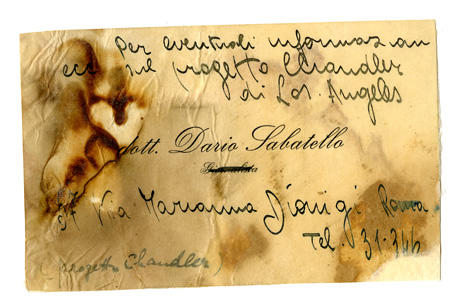 Per eventuali informazioni
ecc sul progetto Chandler
di Los Angeles
dott. Dario Sabatello
Giornalista
57 Via Marianna Dionigi Roma
Tel. 31-346
(progetto Chandler)